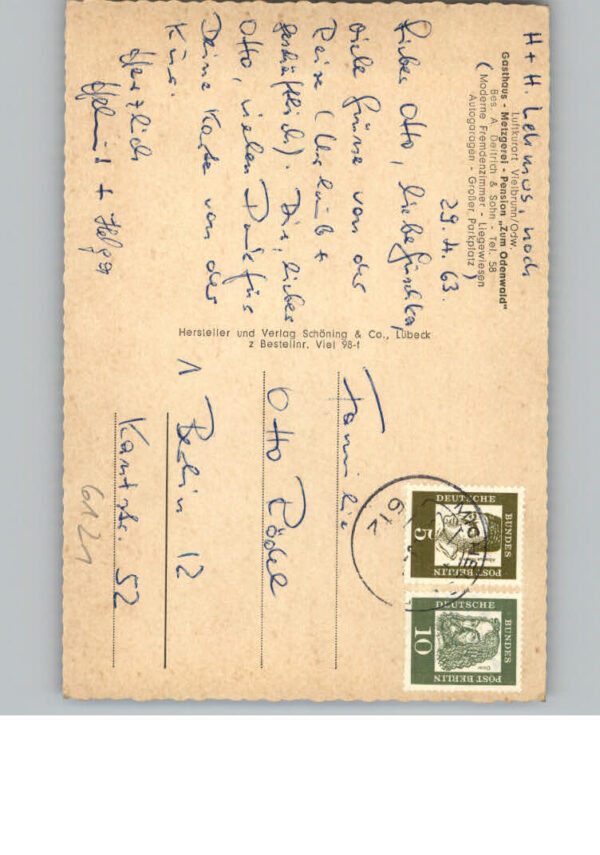 H + H. Lehmus, noch
Luftkurort Vielbrunn/Odw.
Gasthaus - Metzgerei - Pension „Zum Odenwald"
Bes. A. Deitrich & Sohn - Tel. 58
( Moderne Fremdenzimmer - Liegewiesen
Autogaragen - Großer Parkplatz )
29. 4. 63.
Lieber Otto, liebe
viele Grüsse von der
Reise (Urlaub +
geschäftlich). Dir, lieber
Otto, vielen Dank für
Deine Karte von der
Kur.
Herzlich
Helmut + Helga
Hersteller und Verlag Schöning & Co., Lübeck
z Bestellnr. Viel 98-f
Familie
Otto Rödel
1 Berlin 12
Kantstr. 52
6121
DEUTSCHE
BUNDES
POST BERLIN
5
DEUTSCHE
BUNDES
POST BERLIN
10
Dürer